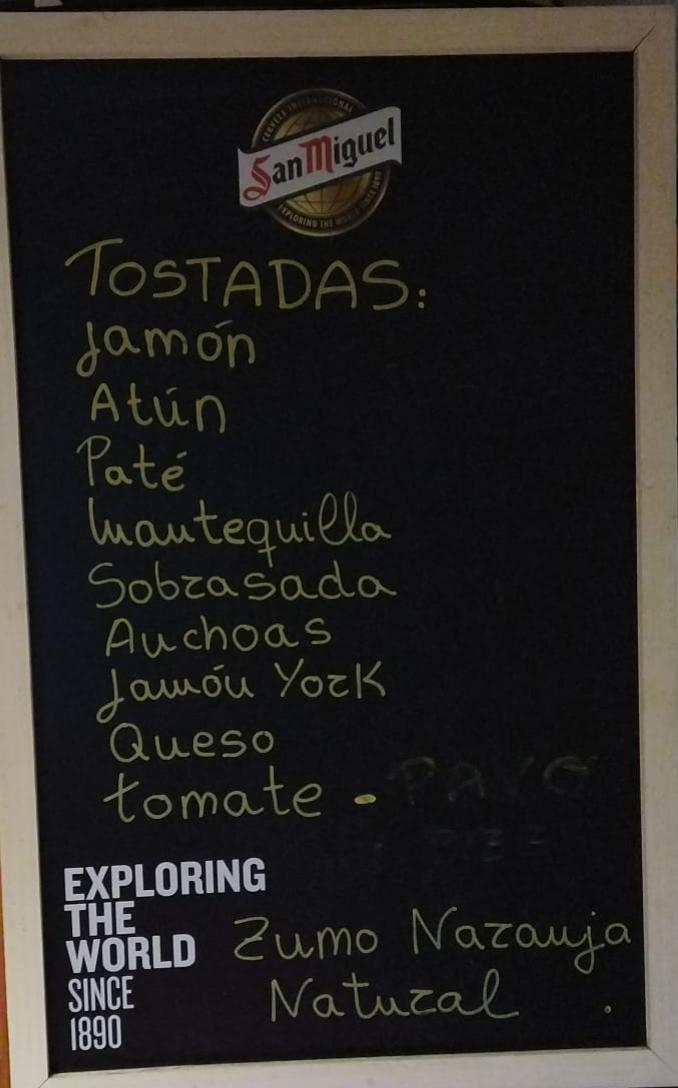 CERVEZA INTERNACIONAL
San Miguel
EXPLORING THE WORLD SINCE 1890
TOSTADAS:
Jamón
Atún
Paté
Mantequilla
Sobrasada
Anchoas
Jamón York
Queso
tomate - PAVO
EXPLORING
THE
WORLD
SINCE
1890
Zumo Naranja
Natural